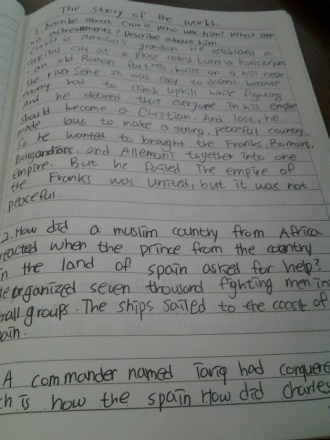 The story of the world
1. Describe about Clovis who was him? What are
achievements? Describe about him
Clovis is Merovius's grandson. He establish a
capital city at a place called Lutetia Parisiorum
an old Roman fortress, built on a hill near
the river Seine. It was easy to defend because
enemy had to climb uphill while fighting
And he decreed that everyone in his empire
should become a Christian. And last, he
made laws to make a strong, peaceful country.
So he wanted to brought the Franks, Romans,
Burgundians, and Allemani together into one
empire. But he failed. The empire of
the Franks was united, but it was not
peaceful.
2. How did a muslim country from Africa
reacted when the prince from the country
in the land of spain asked for help?
He organized seven thousand fighting men in
small groups. The ships sailed to the coast of
pain.
A commander named Tariq had conquere
is how the spain How did charles